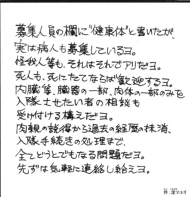 募集人員の欄に"健康体"と書いたが、
実は病人も募集しているヨ。
怪我人等も、それはそれでアリだヨ。
死人も、死にたてならば歓迎するヨ。
内臓等、臓器の一部、肉体の一部のみを
入隊士もたい者の相談も
受け付ける構えだヨ。
肉親の説得から過去の経歴の抹消、
入隊手続きの処理まで、
全てどうとでもなる問題だヨ。
先ずは気軽に連絡し給えヨ。